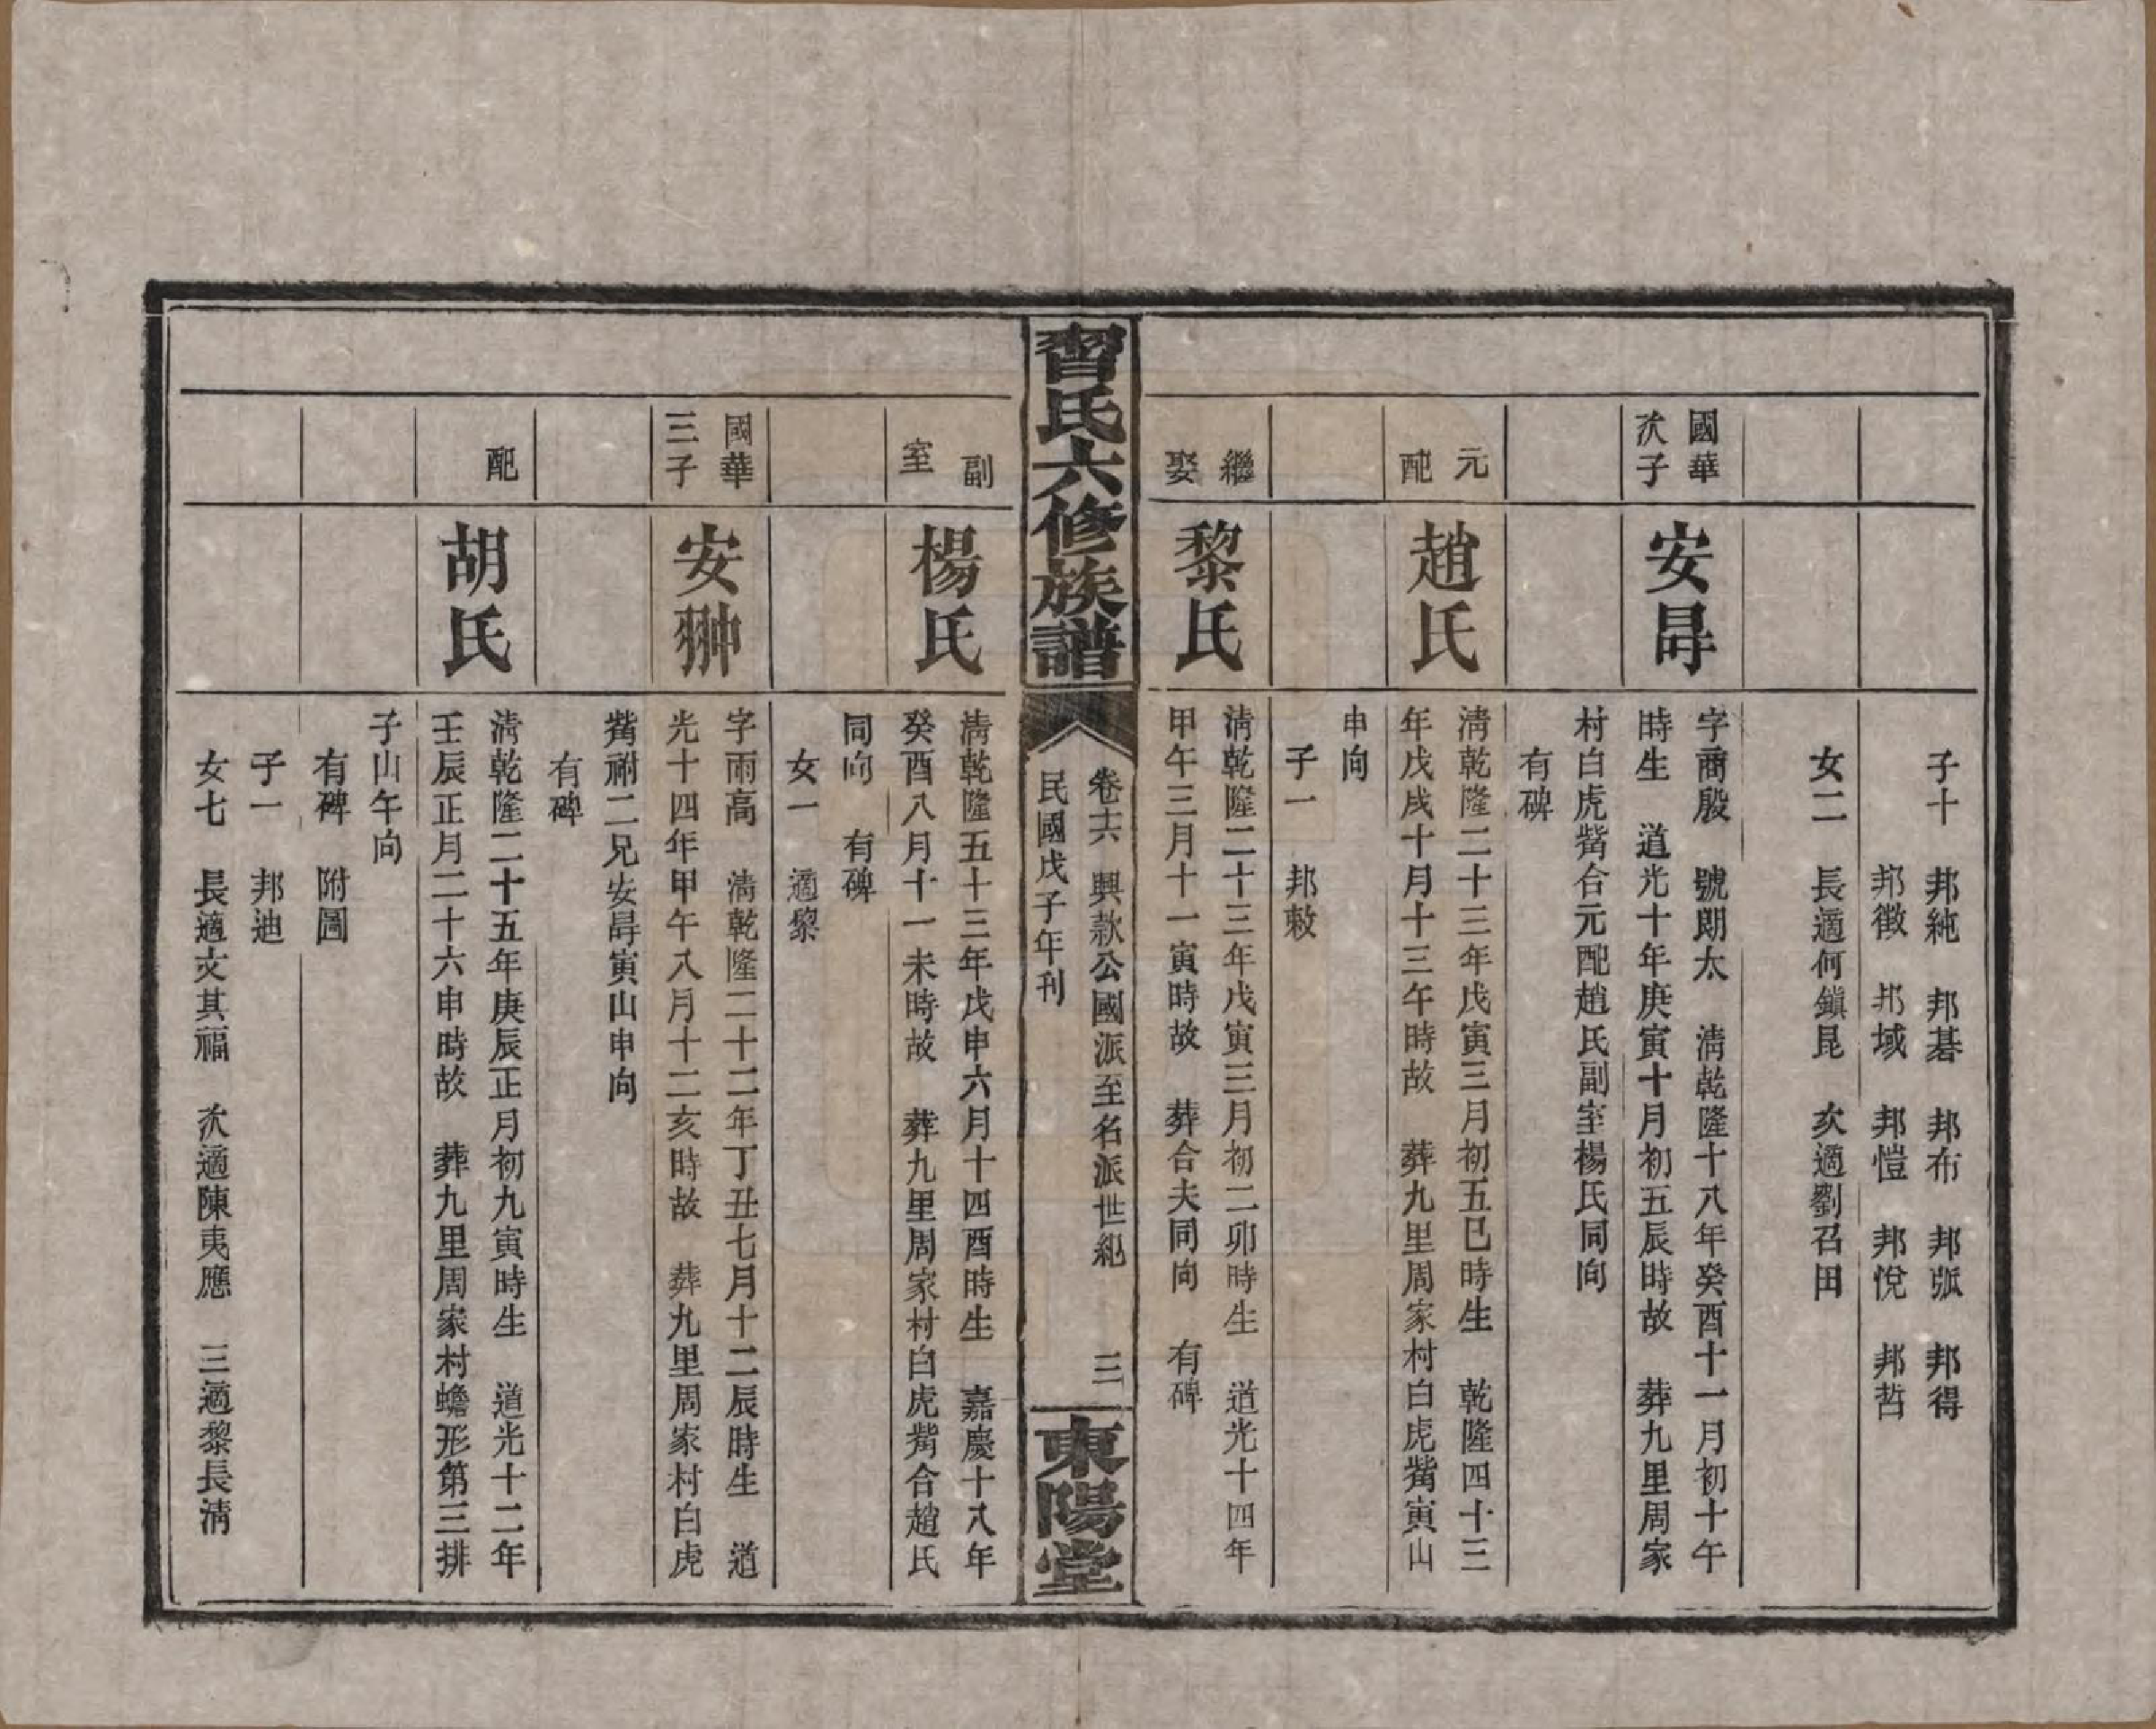 子十　邦純　邦碁　邦布　邦弧　邦得
邦徵　邦域　邦愷　邦悅　邦哲
女二　長適何鎮昆　次適劉召田
國華
次子
安㝵
字商殷　號朗太　清乾隆十八年癸酉十一月初十午
時生　道光十年庚寅十月初五辰時故　葬九里周家
村白虎觜合元配趙氏副室楊氏同向
有碑
元
配
趙氏
清乾隆二十三年戊寅三月初五巳時生　乾隆四十三
年戊戌十月十三午時故　葬九里周家村白虎觜寅山
申向
子一　邦敕
繼
娶
黎氏
清乾隆二十三年戊寅三月初二卯時生　道光十四年
甲午三月十一寅時故　葬合夫同向　有碑
習氏六修族譜
卷十六　興款公國派至名派世紀　三
民國戊子年刊
東陽堂
副
室
楊氏
清乾隆五十三年戊申六月十四酉時生　嘉慶十八年
癸酉八月十一未時故　葬九里周家村白虎觜合趙氏
同向　有碑
女一　適黎
國華
三子
安翀
字雨高　清乾隆二十二年丁丑七月十二辰時生　道
光十四年甲午八月十二亥時故　葬九里周家村白虎
觜祔二兄安㝵寅山申向
有碑
配
胡氏
清乾隆二十五年庚辰正月初九寅時生　道光十二年
壬辰正月二十六申時故　葬九里周家村蟾形第三排
子山午向
有碑　附圖
子一　邦迪
女七　長適文其福　次適陳夷應　三適黎長清